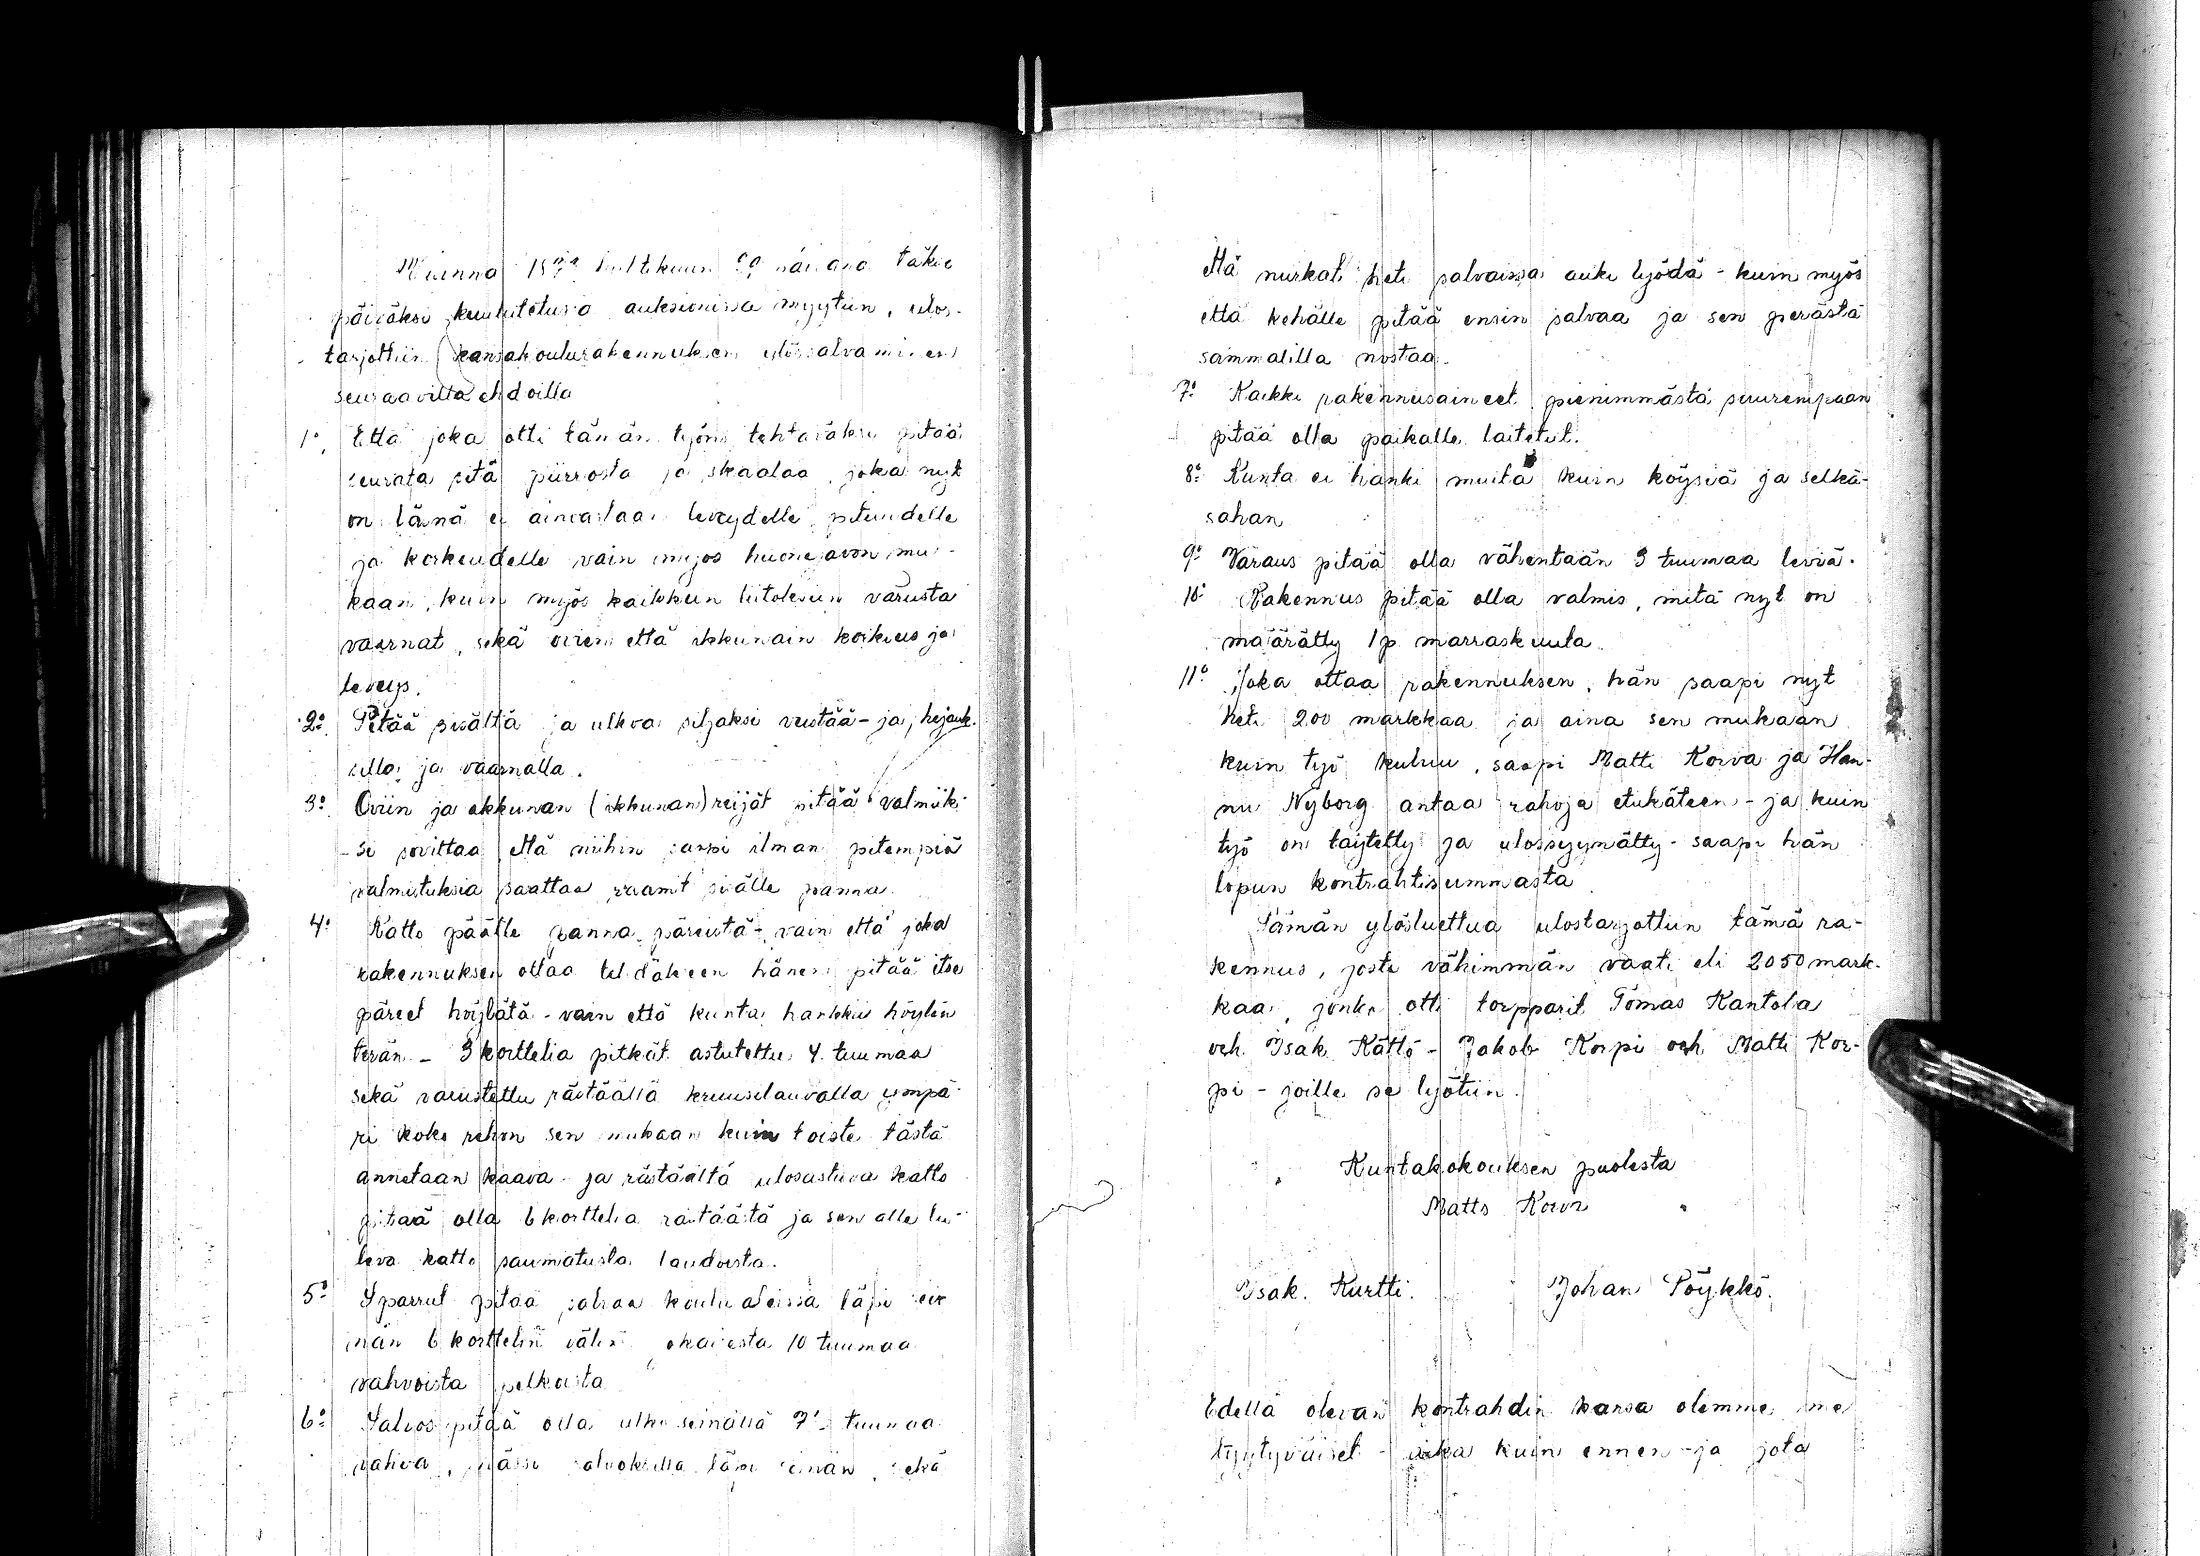 päiväksi kuulutetussa auksionissa myytiin, ulos-
tarjottiin kansakoulurakennuksen ylössalvaminen
seuraavilla ehdoilla
1o Että joka otti tämän työn tehtäväksi pitää
seurata sitä piirrosta ja skaalaa, joka nyt
on läsnä ei ainoastaan leveydelle, pituudelle
ja korkeudelle vain myös huone
kaan, kuin myös kaikkiin varusta
vaarnat, sekä ovien että ikkunain korkeus ja
leveys.
2o Pitää sisältä ja ulkoa siljaksi veistää - ja
ja vaarnalla.
3o Oviin ja akkunan (ikkunan) reijät pitää valmiik-
si sovittaa että niihin saapi ilman pitempiä
valmistuksia saattaa raamit sisälle panna.
4o Katto päälle panna päreistä - vain että joka
rakennuksen ottaa tehdäkseen hänen pitää itse
päreet höylätä - vain että kunta hankkii höylän
terän - 3 korttelia pitkät astutettu 4 tuumaa
sekä varustettu räстäällä ympä-
ri koko sen mukaan kuin toiste tästä
annetaan kaava - ja rästäältä ulosastuva katto
pitää olla 6 korttelia rästäästä ja sen alle tu-
leva katto saumatusta laudoista.
5o Sparrut pitää salvaa läpi sei-
nän 6 korttelin väliä 10 tuumaa
vahvoista pelkoista
6o Salvos pitää olla ulko seinällä 7 tuumaa
vahva, läpi seinän, sekä
että nurkat heti salvaissa auki lyödä - kuin myös
että kehälle pitää ensin salvaa ja sen perästä
sammalilla nostaa.
7o Kaikki rakennusaineet pienimmästä suurempaan
pitää olla paikalle laitetut.
8o Kunta ei hanki muita kuin köysiä ja selkä-
sahan
9o Varaus pitää olla vähentään 3 tuumaa leviä.
10 Rakennus pitää olla valmis, mitä nyt on
määrätty 1 p marraskuuta.
11o Joka ottaa rakennuksen, hän saapi nyt
heti 200 markkaa ja aina sen mukaan
kuin työ kuluu, saapi Matti Korva ja Han-
nu Nyborg antaa rahoja etukäteen - ja kuin
työ on täytetty ja ulossyynätty - saapi hän
lopun kontrahtisummasta
Tämän ylösluettua ulostarjottiin tämä ra-
kennus, josta vähimmän vaati eli 2050 mark-
kaa, jonka otti torpparit Tomas Kantola
och Isak Kättö - Jakob Korpi och Matti Kor-
pi - joille se lyötiin.
Kuntakokouksen puolesta
Matts Korva
Isak Kurtti. Johan Pöykkö.
Edellä olevan kontrahdin kansa olemme me
tyytyväiset - kuin ennen - ja jota